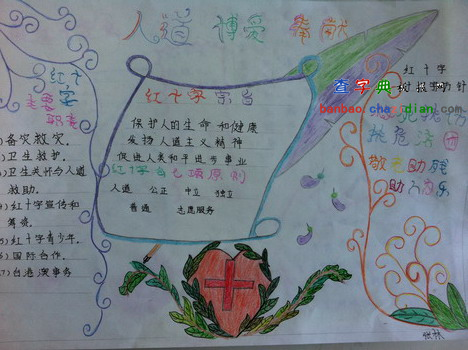 人道 博爱 奉献
红十字会
主要
职责
备灾救灾.
卫生救护.
卫生关怀与人道
救助.
红十字宣传和
筹资.
红十字青少年.
国际合作.
台港澳事务
红十字宗旨
保护人的生命和健康
发扬人道主义精神
促进人类和平进步事业
红十字会七项原则
人道 公正 中立 独立
普遍 志愿服务
红十字
查字典
bonbao.chazidian.com
扶危济困
敬老助残
助人为乐